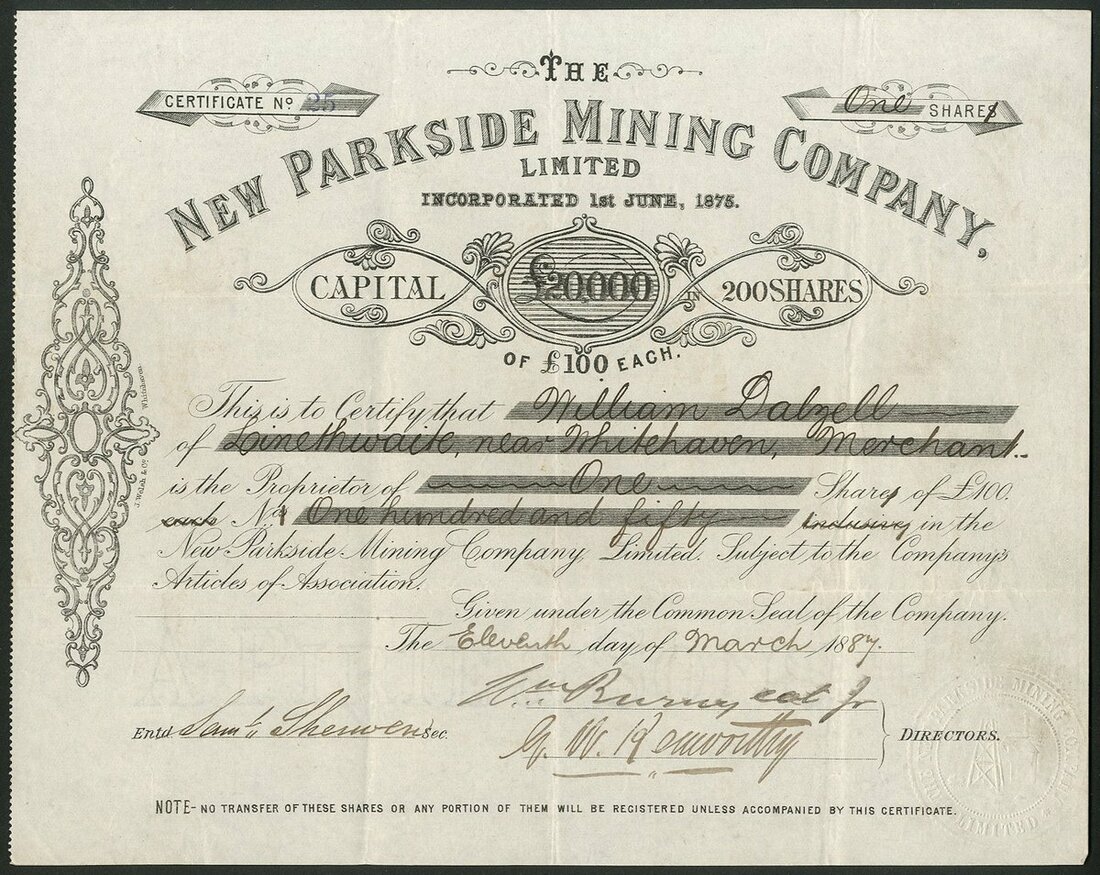 THE
CERTIFICATE No 25
One SHARES
NEW PARKSIDE MINING COMPANY,
LIMITED
INCORPORATED 1st JUNE, 1875.
CAPITAL £20,000 IN 200 SHARES
OF £100 EACH.
This is to Certify that William Dalzell
of Linethwaite, near Whitehaven, Merchant.
is the Proprietor of One Shares of £100.
each Nos One hundred and fifty inclusive in the
New Parkside Mining Company Limited. Subject to the Company's
Articles of Association.
Given under the Common Seal of the Company.
The Eleventh day of March 1887.
Wm Burnyeat Jr
Entd Saml Sherwen Sec.
G. W. Kenworthy
DIRECTORS.
NOTE- NO TRANSFER OF THESE SHARES OR ANY PORTION OF THEM WILL BE REGISTERED UNLESS ACCOMPANIED BY THIS CERTIFICATE.
J. Walsh & Co. Whitehaven.
PARKSIDE MINING CO.
LIMITED